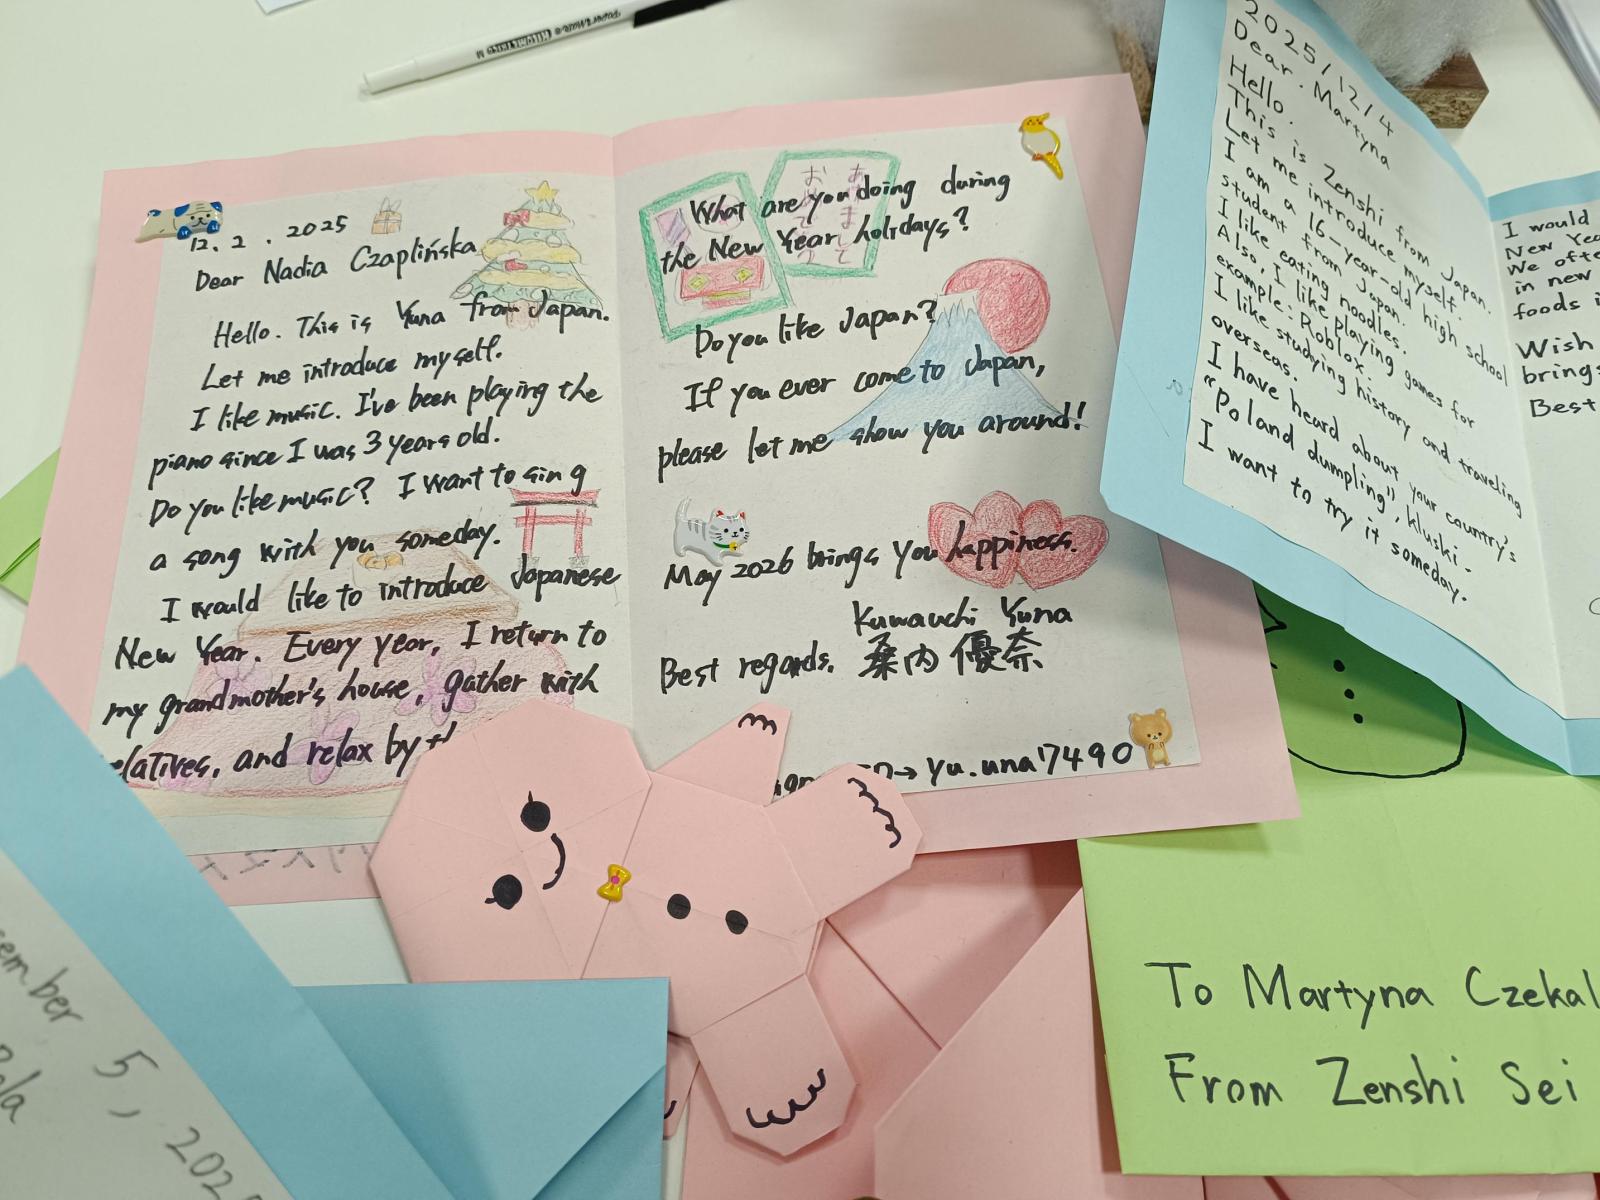 12. 2. 2025
Dear Nadia Czaplińska
Hello. This is Yuna from Japan.
Let me introduce myself.
I like music. I've been playing the
piano since I was 3 years old.
Do you like music? I want to sing
a song with you someday.
I would like to introduce Japanese
New Year. Every year, I return to
my grandmother's house, gather with
relatives, and relax by
What are you doing during
the New Year holidays?
Do you like Japan?
If you ever come to Japan,
please let me show you around!
May 2026 brings you happiness.
Kuwauchi Yuna
Best regards, 桑内 優奈
→ yu.una17490
2025/12/4
Dear. Martyna
Hello.
This is Zenshi from Japan.
Let me introduce myself.
I am a 16-year-old high school
student from Japan.
I like eating noodles.
Also, I like playing games for
example: Roblox.
I like studying history and traveling
overseas.
I have heard about your country's
"Poland dumpling", kluski.
I want to try it someday.
I would
New
We
in new
foods
Wish
brings
Best
To Martyna
From Zenshi Sei
5, 202